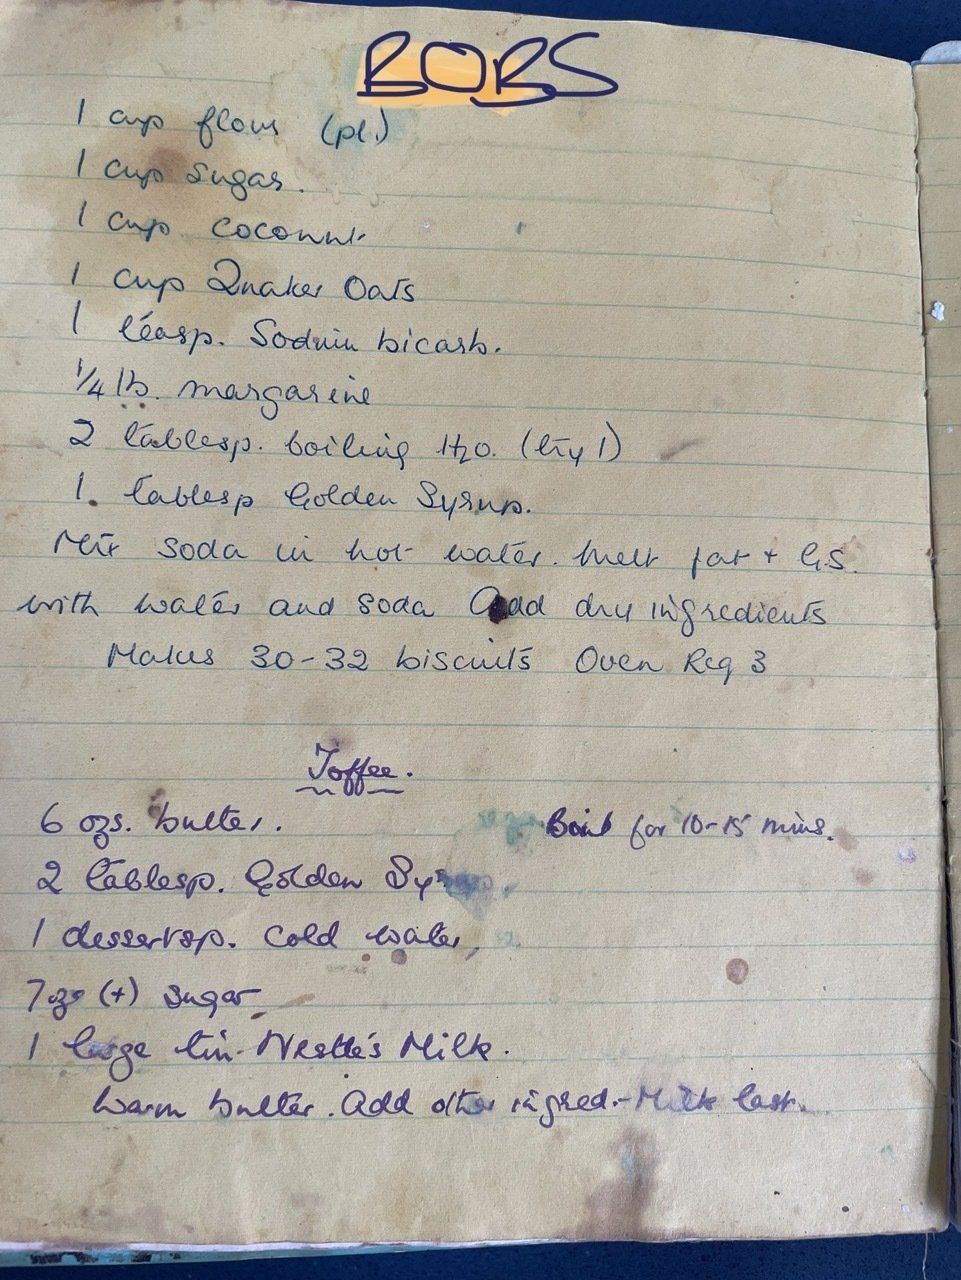 BOBS
1 cup flour (pl.)
1 cup sugar.
1 cup coconut.
1 cup Quaker Oats
1 teasp. Sodium bicarb.
1/4 lb. margarine
2 tablesp. boiling H2O. (try 1)
1. tablesp Golden Syrup.
Mix soda in hot water. Melt fat + G.S.
with water and soda Add dry ingredients
Makes 30-32 biscuits Oven Reg 3
Toffee.
6 ozs. butter.
Boil for 10-15 mins.
2 tablesp. Golden Sy
1 dessertsp. cold water,
7 ozs (+) sugar
1 large tin Nestle's Milk.
Warm butter. Add other ingred. - Milk last.